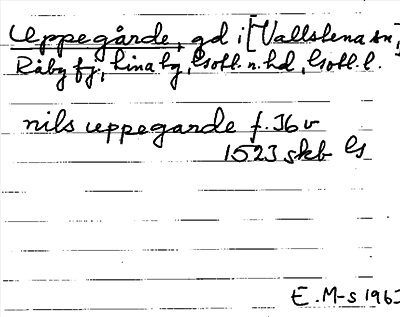 Uppegårde, gd i [Vallstena sn,
Råby fj, Lina tg, Gotl. n. hd, Gotl. l.
nils uppegarde f. 36 v
1523 skb Gs
E. M-s 1963